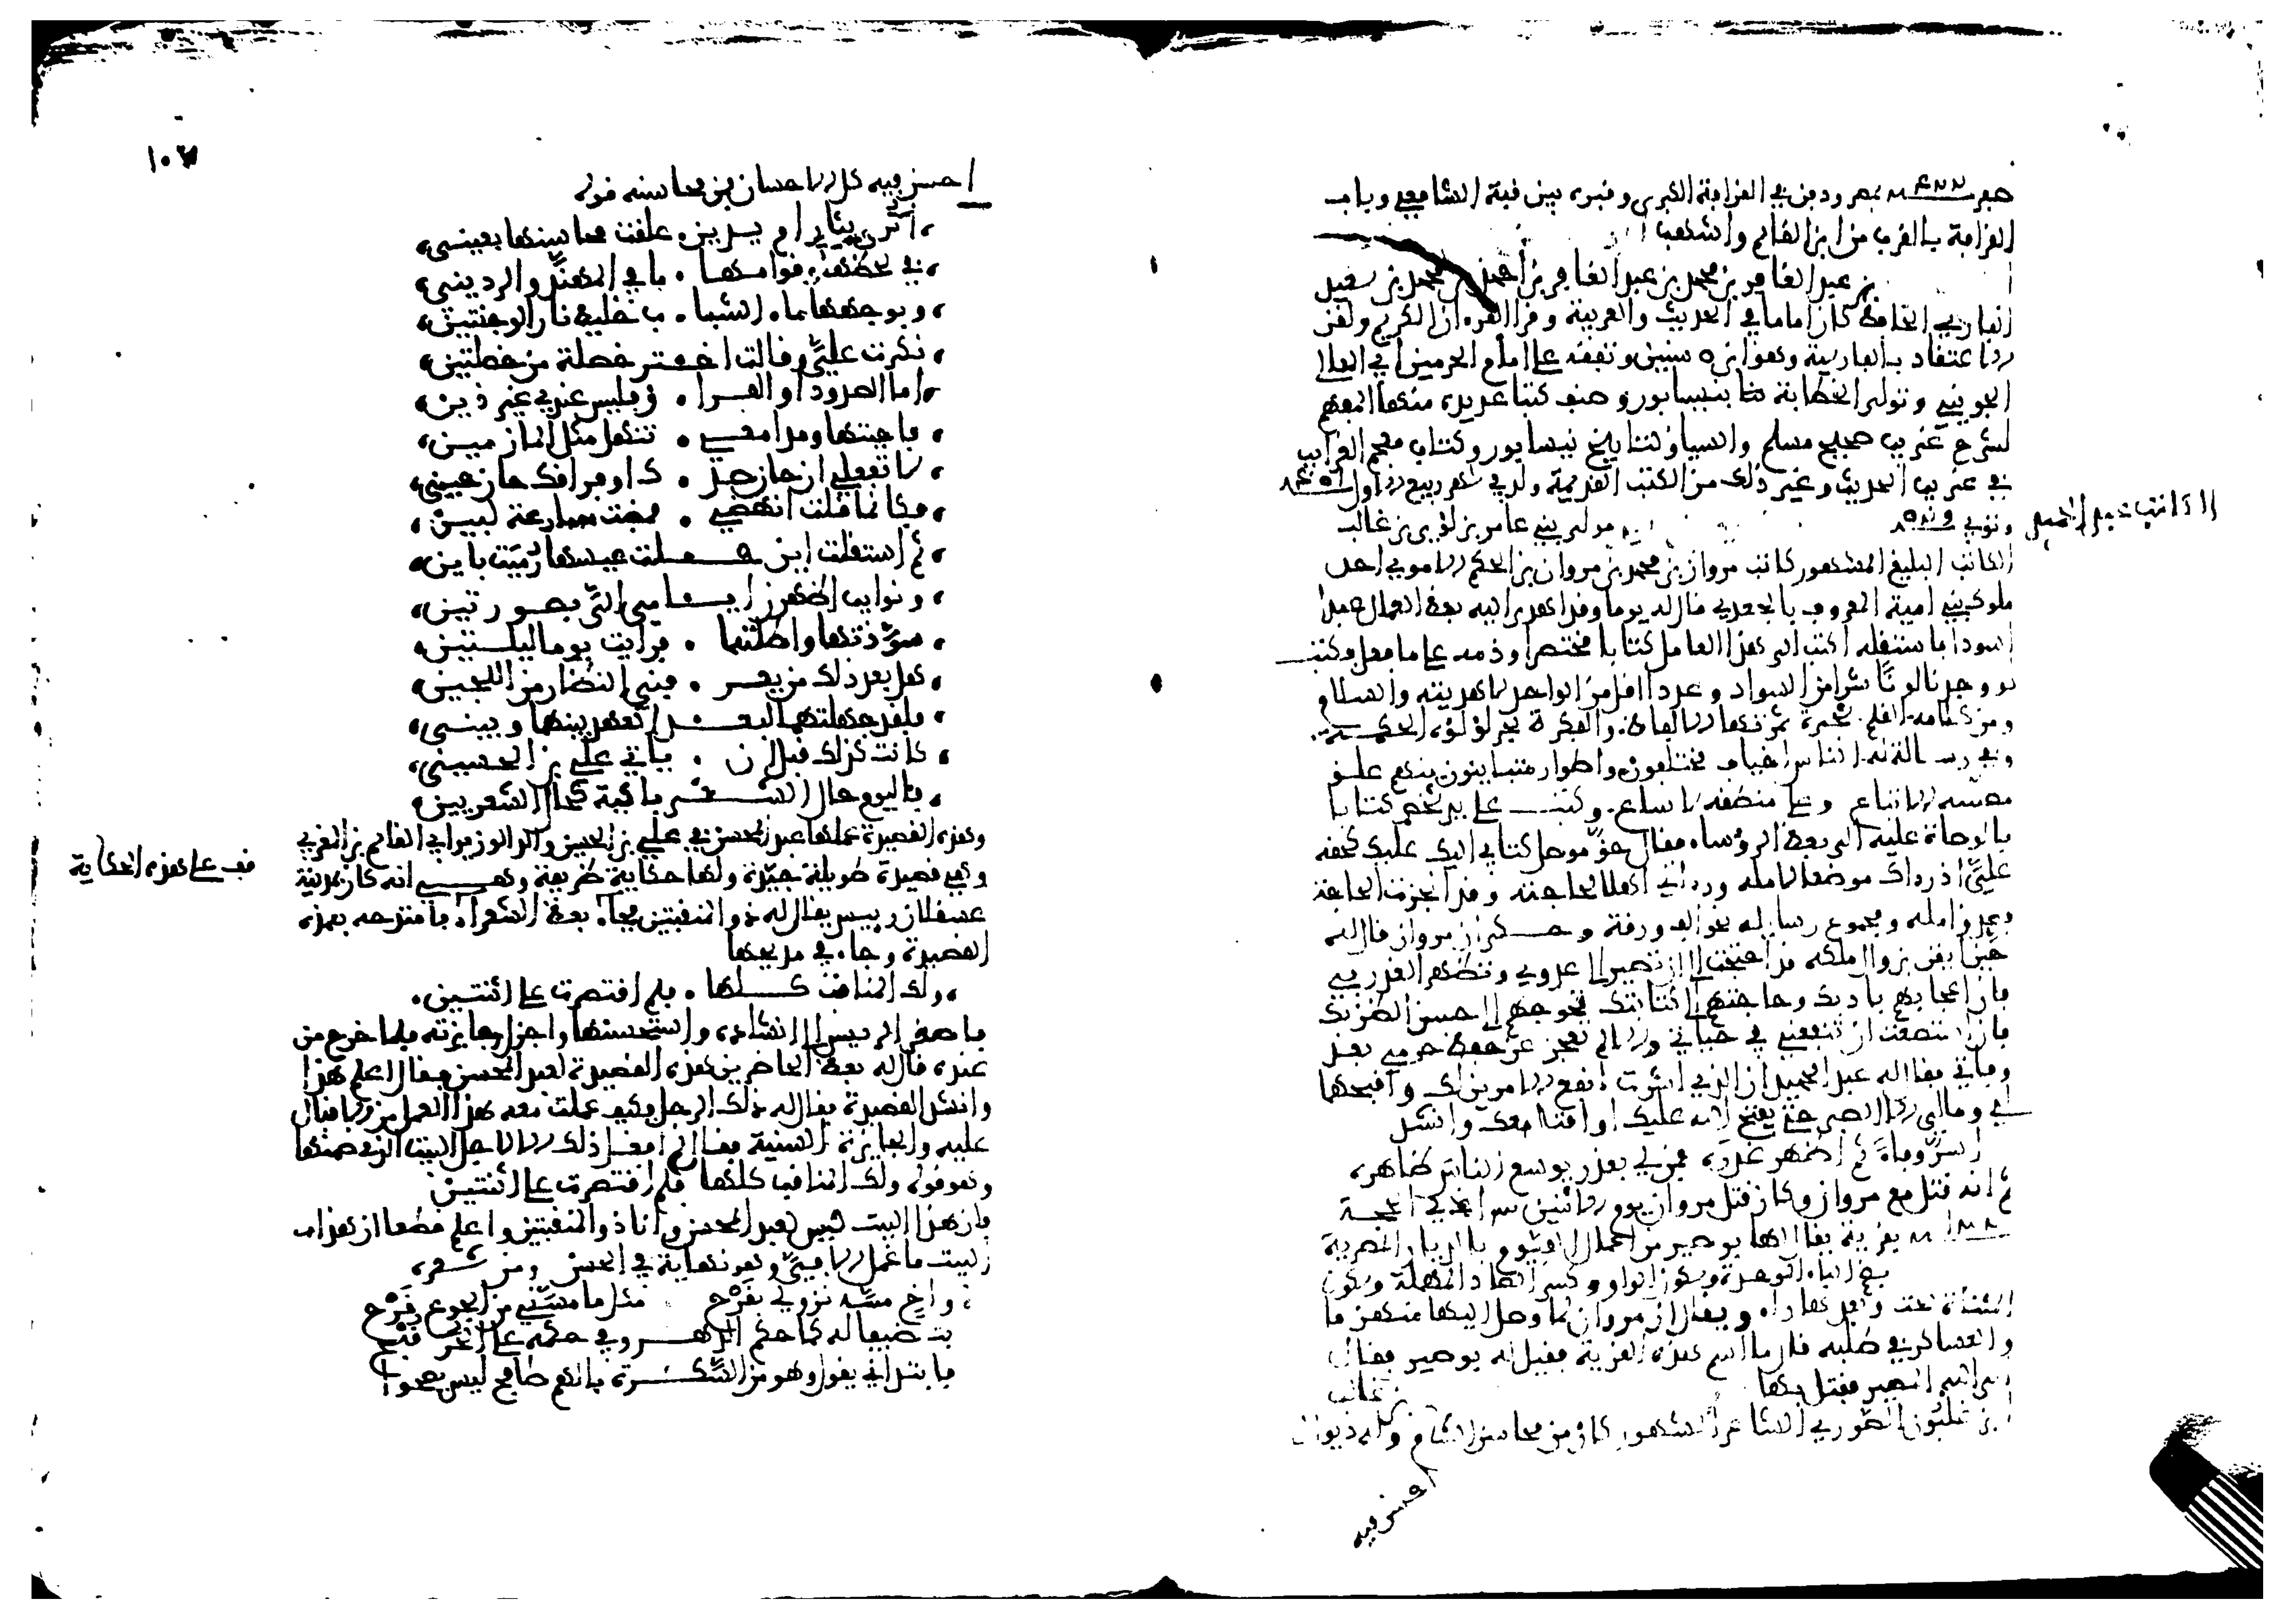 صفر سنة ٤٢٢ بمصر ودفن في القرافة الكبرى وقبره بين قبة الشافعي وباب
القرافة بالقرب من ابن القاسم وأشهب
بن عبد الغافر بن محمد بن عبد الغافر بن أحمد بن محمد بن سعيد
الفارسي الحافظ كان إماما في الحديث والعربية وقرأ القرءان الكريم ولقن
الاعتقاد بالفارسية وهو ابن ٥ سنين وتفقه على إمام الحرمين أبي المعالي
الجويني وتولى الخطابة بنيسابور وصنف كتبا عديدة منها المفهم
لشرح غريب صحيح مسلم والسياق لتاريخ نيسابور وكتاب مجمع الغرائب
في غريب الحديث وغير ذلك من الكتب المفيدة ولد في شهر ربيع الأول سنة ٤٥١
الكاتب عبد الحميد
وتوفي سنة
مولى بني عامر بن لؤي بن غالب
الكاتب البليغ المشهور كاتب مروان بن محمد بن مروان بن الحكم الأموي أحد
ملوك بني أمية المعروف بالجعدي قال له يوما وقد أهدى إليه بعض العمال عبدا
أسودا فاستقله اكتب إلى هذا العامل كتابا مختصرا وذمه على ما فعل فكتب
لو وجدت لونا شرا من السواد وعددا أقل من الواحد لأهديته والسلام
ومن كلامه القلم شجرة ثمرتها الألفاظ والفكرة بحر لؤلؤه الحكمة
وفي رسالة له الناس أخياف مختلفون وأطوار متباينون منهم علق
مضنة لا تباع وغل مظنة لا تبتاع وكتب على يد شخص كتابا
بالوصاة عليه إلى بعض الرؤساء فقال حق موصل كتابي إليك عليك كحقه
علي إذ رءاك موضعا لأمله ورءاني أهلا لحاجته وقد أنجزت الحاجة
فصدق أمله ومجموع رسائله نحو ألف ورقة وحكي أن مروان قال له
حين أيقن بزوال ملكه قد احتجت إلى أن تصير إلى عدوي وتظهر الغدر بي
فإن إعجابهم بأدبك وحاجتهم إلى كتابتك تحوجهم إلى حسن الظن بك
فإن استطعت أن تنفعني في حياتي وإلا لم تعجز عن حفظ حرمي بعد
وفاتي فقال له عبد الحميد إن الذي أشرت أنفع الأمرين لك وأقبحها
لي وما لي إلا الصبر حتى يفتح الله عليك أو أقتل معك وأنشد
أسر وفاء ثم أظهر غدرة فمن لي بعذر يوسع الناس ظاهره
ثم إنه قتل مع مروان وكان قتل مروان يوم الاثنين ذي الحجة
سنة ١٣٢ بقرية يقال لها بوصير من أعمال الفيوم بالديار المصرية
بضم الباء الموحدة وسكون الواو وكسر الصاد المهملة وسكون
المثناة تحت وبعدها راء ويقال إن مروان لما وصل إليها منهزما
والعساكر في طلبه قال ما اسم هذه القرية فقيل له بوصير فقال
إلى الله المصير فقتل بها
بن غالب
ابن غلبون الصوري الشاعر المشهور كان من محاسن الشام وله ديوان
أحسن فيه
١٠٧
أحسن فيه كل الإحسان فمن محاسنه قوله
أترى بثأر أم بدين علقت محاسنها بعيني
في لحظها وقوامها ما في المهند والرديني
وبوجهها ماء الشباب خليط نار الوجنتين
بكرت علي وقالت اختر خصلة من خصلتين
إما الصدود أو الفراق فليس عندي غير ذين
فأجبتها ومدامعي تنهل مثل المأزمين
لا تفعلي إن حان صدك أو فراقك حان حيني
فكأنما قلت انهضي فمضت مسارعة لبيني
ثم استقلت أين حلت عيسها رميت بأين
ونوائب أظهرن أيامي إلي بصورتين
سودتها وأطلتها فرأيت يوما ليلتين
هل بعد ذلك من يعرفني النضار من اللجين
فلقد جهلتهما لبعد العهد بينهما وبيني
كانت كذلك قبل أن يأتي علي بن الحسين
فاليوم حال الشعر ثالثة كحال الشعريين
وهذه القصيدة عملها عبد المحسن في علي بن الحسين والد الوزير أبي القاسم بن المغربي
قف على هذه الحكاية
وهي قصيدة طويلة جيدة ولها حكاية ظريفة وهي أنه كان بمدينة
عسقلان رئيس يقال له ذو المنقبتين فجاءه بعض الشعراء فامتدحه بهذه
القصيدة وجاء في مديحها
ولك المناقب كلها فلم اقتصرت على اثنتين
فأصغى الرئيس إلى إنشاده واستحسنها وأجزل جايزته فلما خرج من
عنده قال له بعض الحاضرين هذه القصيدة لعبد المحسن فقال أعلم هذا
وأنشد القصيدة فقال له ذلك الرجل وكيف عملت معه هذا العمل من الإقبال
عليه والجايزة السنية فقال لم أفعل ذلك إلا لأجل البيت الذي ضمنها
وهو قوله ولك المناقب كلها فلم اقتصرت على اثنتين
فإن هذا البيت ليس لعبد المحسن وأنا ذو المنقبتين وأعلم قطعا أن هذا
البيت ما عمل إلا في وهو نهاية في الحسن ومن شعره
وأخ مسه نزولي بقرح مثل ما مسني من الجوع قرح
بت ضيفا له كما حكم الدهر وفي حكمه على الحر قبح
فابتداني يقول وهو من السكرة بالهم طافح ليس يصحوا